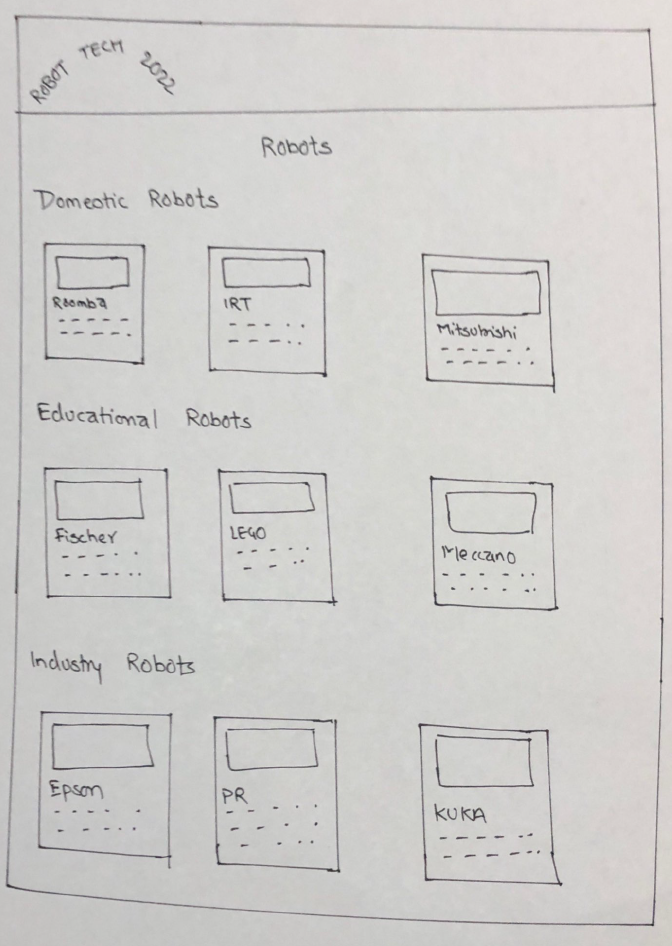 ROBOT TECH 2022
Robots
Domeotic Robots
Roomba
IRT
Mitsubishi
Educational Robots
Fischer
LEGO
Meccano
Industry Robots
Epson
PR
KUKA